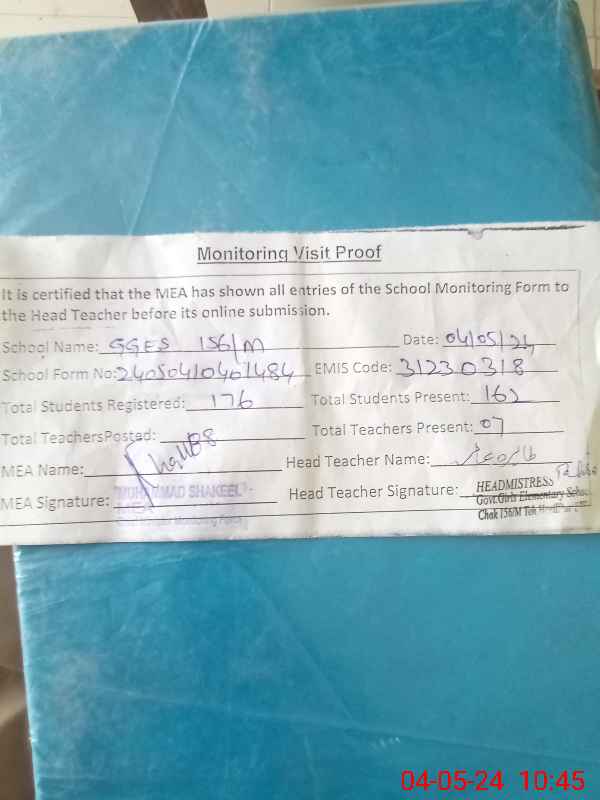 Monitoring Visit Proof
It is certified that the MEA has shown all entries of the School Monitoring Form to
the Head Teacher before its online submission.
School Name: GGES 156/M Date: 04/05/24
School Form No: 24050410401484 EMIS Code: 31230318
Total Students Registered: 176 Total Students Present: 162
Total TeachersPosted: 08 Total Teachers Present: 07
MEA Name: Head Teacher Name:
MEA Signature: MUHAMMAD SHAKEEL Head Teacher Signature: HEADMISTRESS
Govt.Girls Elementary School
Chak 156/M Teh
04-05-24 10:45